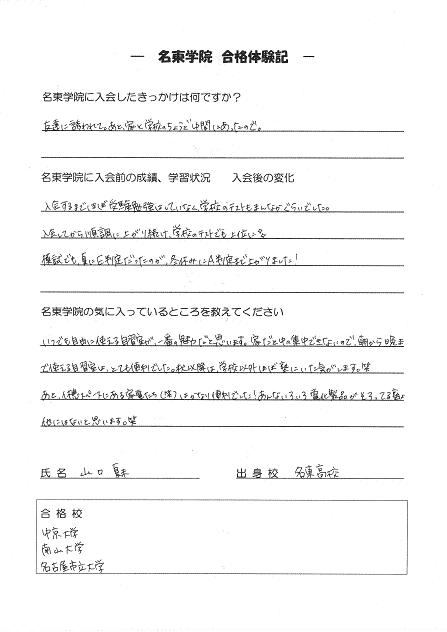 ― 名東学院 合格体験記 ―
名東学院に入会したきっかけは何ですか?
友達に誘われて。あと、家と学校のちょうど中間にあったので。
名東学院に入会前の成績、学習状況 入会後の変化
入会するまではほぼ受験勉強はしていなく、学校のテストもまんなかぐらいでした。
入会してから順調に上がり続け、学校のテストでも上位に
模試でも、夏にE判定だったのが、冬休みにA判定まで上がりました!
名東学院の気に入っているところを教えてください
いつでも自由に使える自習室が、一番の魅力だと思います。家だと中々集中できないので、朝から晩ま
で使える自習室は、とても便利でした。秋以降は、学校以外ほぼ塾にいた気がします。笑
あと、1階スペースにある家電たち(笑)はかなり便利でした!あんないろいろ電化製品がそろってる塾は
他にはないと思います。笑
氏名 山口 出身校 名東高校
合格校
中京大学
南山大学
名古屋市立大学